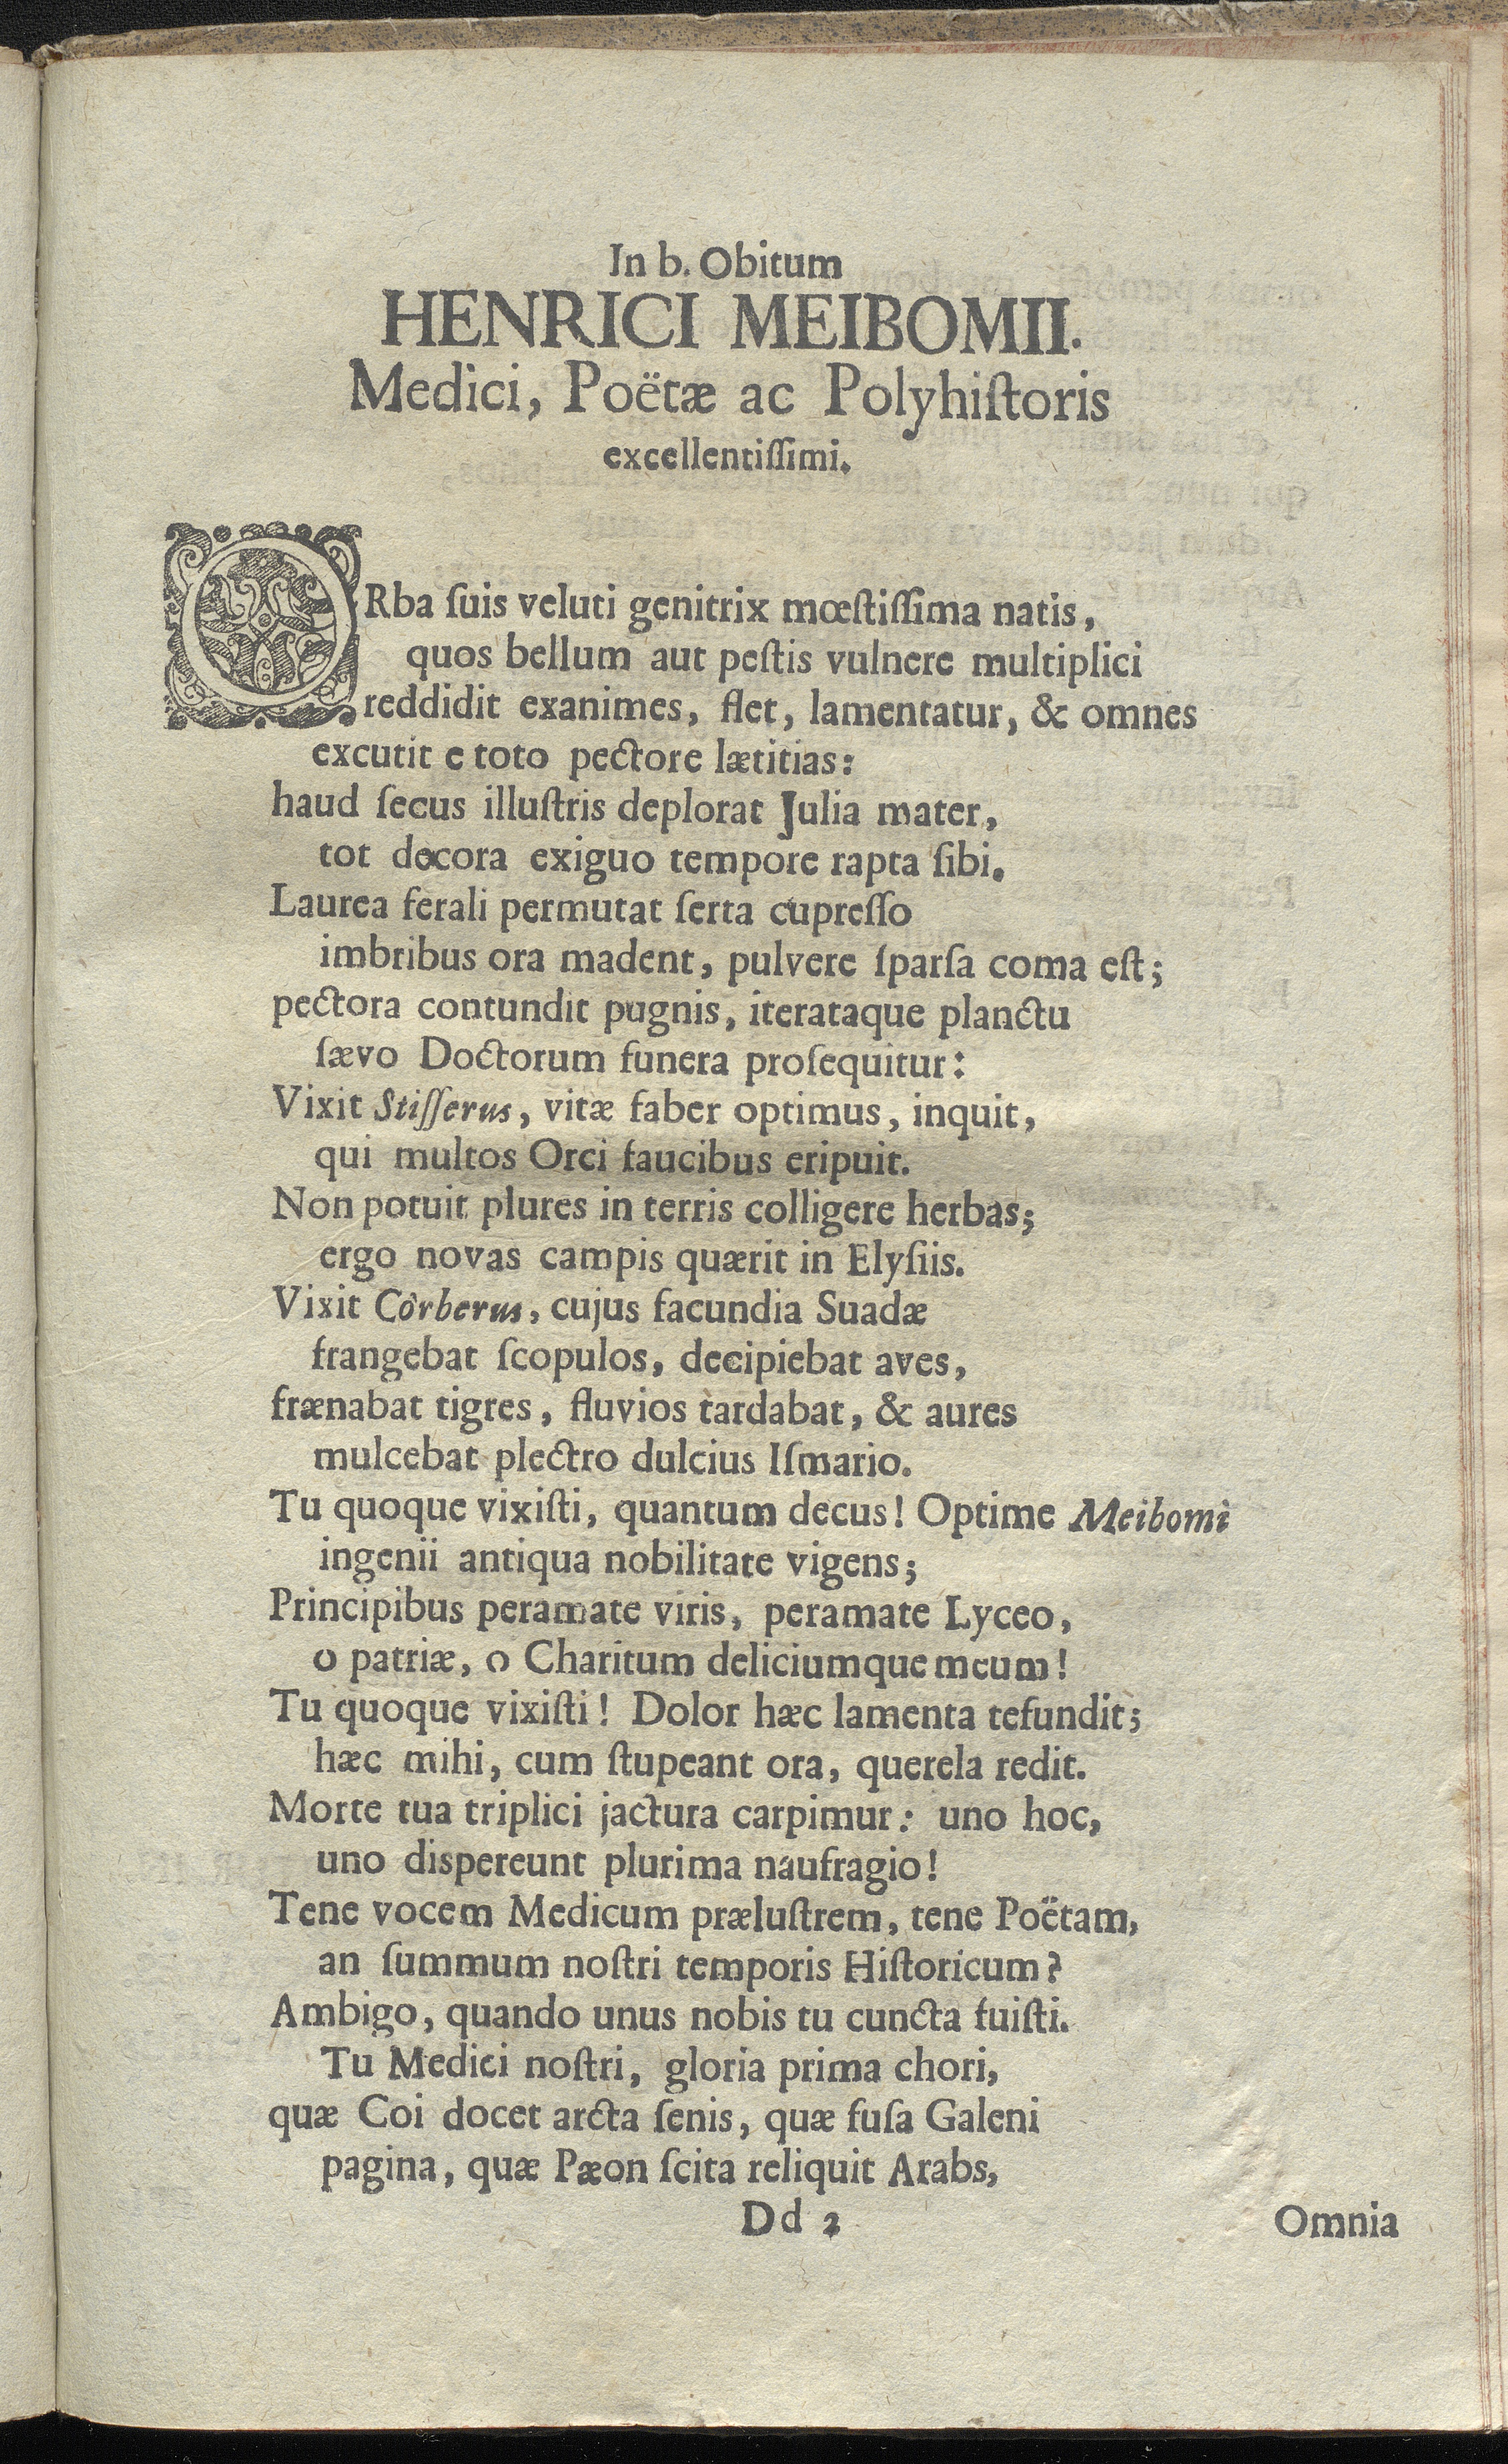 In b. Obitum
HENRICI MEIBOMII.
Medici, Poëtæ ac Polyhiſtoris
excellentiſſimi.
ORba ſuis veluti genitrix mœſtiſſima natis,
quos bellum aut peſtis vulnere multiplici
reddidit exanimes, flet, lamentatur, & omnes
excutit e toto pectore lætitias:
haud ſecus illuſtris deplorat Julia mater,
tot decora exiguo tempore rapta ſibi.
Laurea ferali permutat ſerta cupreſſo
imbribus ora madent, pulvere ſparſa coma eſt;
pectora contundit pugnis, iterataque planctu
ſævo Doctorum funera proſequitur:
Vixit Stiſſerus, vitæ faber optimus, inquit,
qui multos Orci faucibus eripuit.
Non potuit plures in terris colligere herbas;
ergo novas campis quærit in Elyſiis.
Vixit Côrberus, cujus facundia Suadæ
frangebat ſcopulos, decipiebat aves,
frænabat tigres, fluvios tardabat, & aures
mulcebat plectro dulcius Iſmario.
Tu quoque vixiſti, quantum decus! Optime Meibomi
ingenii antiqua nobilitate vigens;
Principibus peramate viris, peramate Lyceo,
o patriæ, o Charitum deliciumque meum!
Tu quoque vixiſti! Dolor hæc lamenta refundit;
hæc mihi, cum ſtupeant ora, querela redit.
Morte tua triplici jactura carpimur: uno hoc,
uno dispereunt plurima naufragio!
Tene vocem Medicum præluſtrem, tene Poëtam,
an ſummum noſtri temporis Hiſtoricum?
Ambigo, quando unus nobis tu cuncta fuiſti.
Tu Medici noſtri, gloria prima chori,
quæ Coi docet arcta ſenis, quæ fuſa Galeni
pagina, quæ Pæon ſcita reliquit Arabs,
Dd 2
Omnia